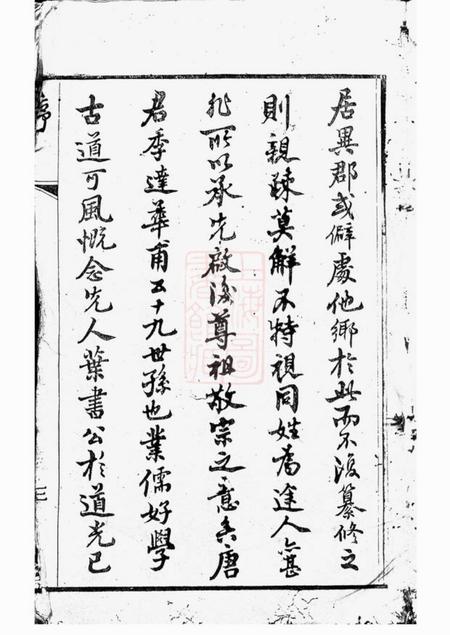 居異郡或僻處他鄉於此而不復纂修之
則親疎莫解不特視同姓為途人甚
非所以承先啟後尊祖敬宗之意矣唐
君季達彝甫五十九世孫也業儒好學
古道可風慨念先人葉書公於道光己
序
三